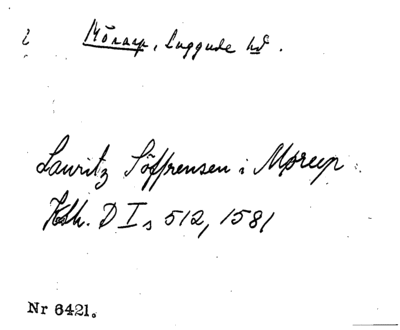 i Mörarp, Luggude hd.
Lauritz Söffrensen i Mørup
Hlk. D I s 512, 1581
Nr 6421.